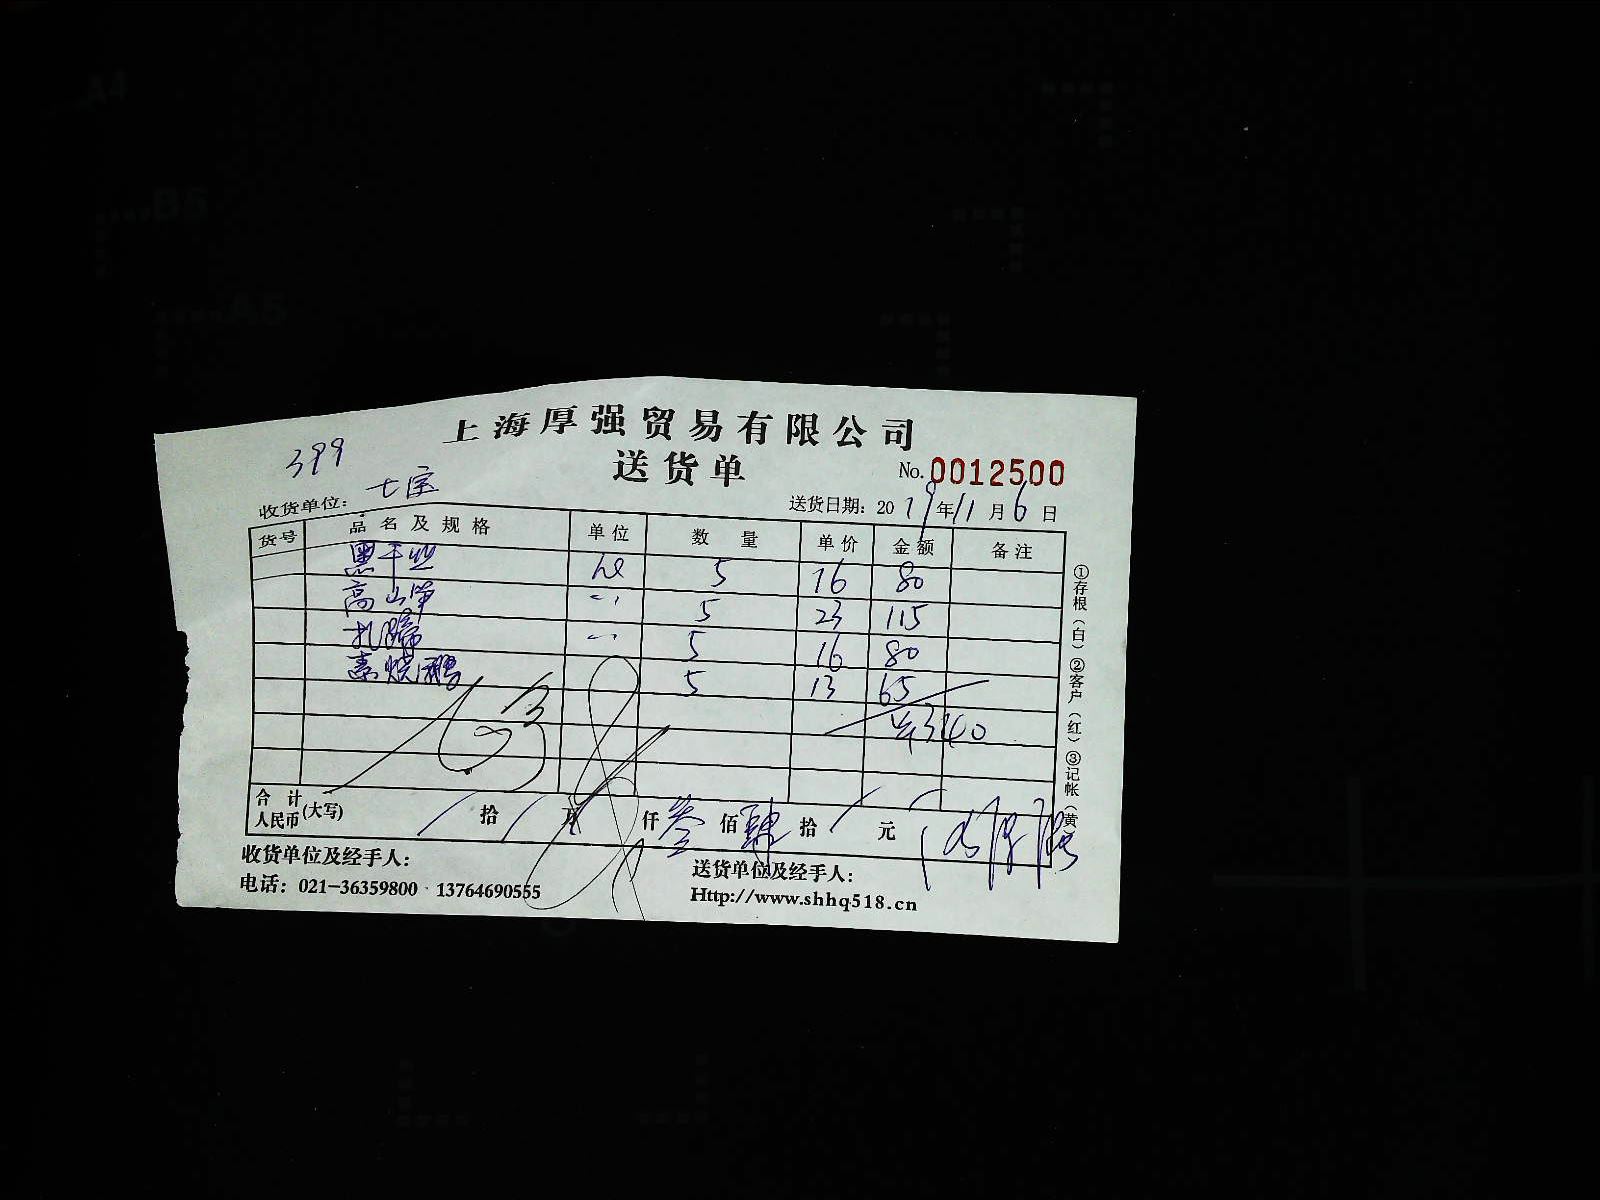 上海厚强贸易有限公司
送货单
No.0012500
399
收货单位: 七宝
送货日期: 2019年11月6日
货号 品名及规格 单位 数量 单价 金额 备注
黑干丝 5 16 80
高山笋 5 23 115
扎蹄 5 16 80
素烧鹅 5 13 65
340
合计人民币(大写) 拾 万 仟 叁 佰 肆 拾 元
收货单位及经手人:
送货单位及经手人:
电话: 021-36359800 13764690555
Http://www.shhq518.cn
①存根(白)②客户(红)③记帐(黄)
A4
B5
A5